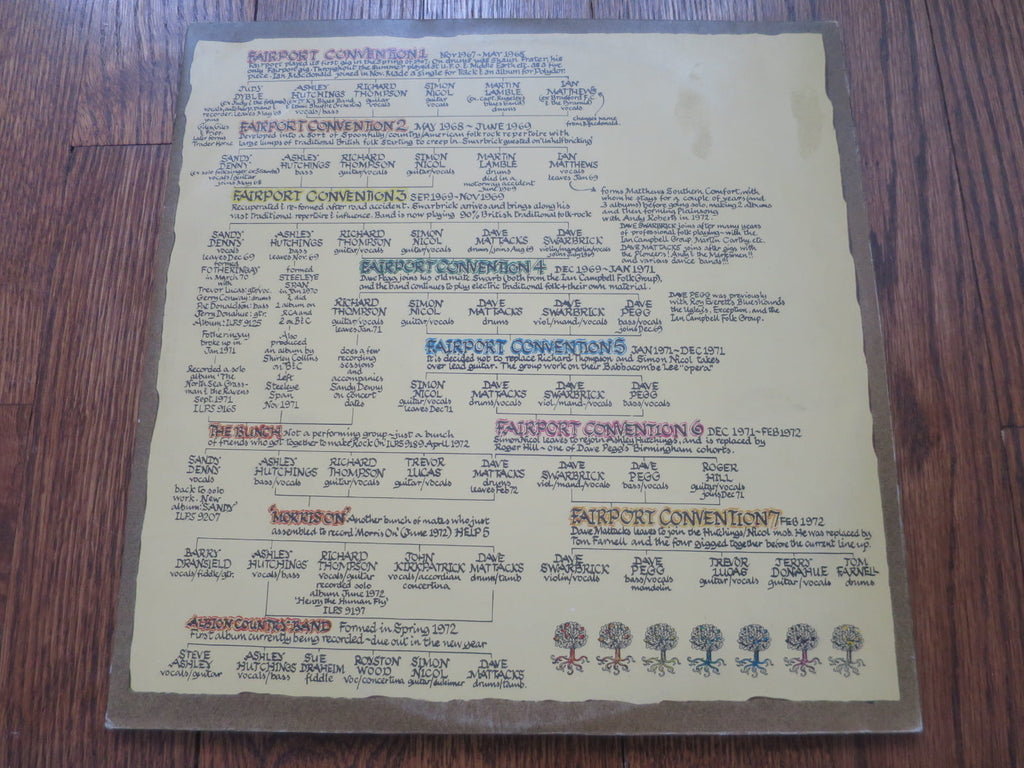 FAIRPORT CONVENTION 1 NOV 1967 ~ MAY 1968
Fairport played its first gig in the Spring of 1967. On drums was Shaun Frater, his
only Fairport gig. Throughout the Summer played at U.F.O., Middle Earth etc. as a five
piece. Ian MacDonald joined in Nov. Made a single for Track & an album for Polydor.
JUDY DYBLE
vocals, autoharp, piano &
recorder. Leaves May 68
ASHLEY HUTCHINGS
vocals/bass
RICHARD THOMPSON
guitar
vocals
SIMON NICOL
guitar
vocals
MARTIN LAMBLE
drums
IAN MATTHEWS
vocals
changes name
from Macdonald.
FAIRPORT CONVENTION 2 MAY 1968 ~ JUNE 1969
Developed into a sort of Spoonfully/country/American folk rock repertoire with
large lumps of traditional British folk starting to creep in. Swarbrick guested on 'Unhalfbricking'
SANDY DENNY
vocals/guitar
joins May 68
ASHLEY HUTCHINGS
bass/vocals
RICHARD THOMPSON
guitar/vocals
SIMON NICOL
guitar/vocals
MARTIN LAMBLE
drums
died in a
motorway accident
June 1969
IAN MATTHEWS
vocals
leaves Jan 69
forms Matthews Southern Comfort, with
whom he stays for a couple of years (and
3 albums) before going solo, making 2 albums
and then forming Plainsong
with Andy Roberts in 1972.
FAIRPORT CONVENTION 3 SEP 1969 ~ NOV 1969
Recuperated & re-formed after road accident. Swarbrick arrives and brings along his
vast traditional repertoire & influence. Band is now playing 90% British traditional folk-rock
DAVE SWARBRICK joins after many years
of professional folk playing ~ with the
Ian Campbell Group, Martin Carthy, etc.
DAVE MATTACKS joins after gigs with
the Pioneers! Andy & the Marksmen!!
and various dance bands!!!
SANDY DENNY
vocals
leaves Dec 69
ASHLEY HUTCHINGS
bass
leaves Nov 69
RICHARD THOMPSON
guitar/vocals
SIMON NICOL
guitar/vocals
DAVE MATTACKS
drums/joins Aug 69
DAVE SWARBRICK
violin/mandolin/vocals
joins July 69
formed
FOTHERINGAY
in March 70
with
Trevor Lucas: gtr/voc.
Gerry Conway: drums
Pat Donaldson: bass
Jerry Donahue: gtr.
Album: ILPS 9125
Fotheringay
broke up in
Jan 1971
Recorded a solo
album 'The
North Sea Grass-
man & the Ravens
Sept. 1971
ILPS 9165
formed
STEELEYE
SPAN
in Jan 1970
& did
1 album on
RCA and
2 on B&C
Also
produced
an album by
Shirley Collins
on B&C
Left
Steeleye
Span
Nov 1971
FAIRPORT CONVENTION 4 DEC 1969 ~ JAN 1971
Dave Pegg joins his old mate Swarb (both from the Ian Campbell Folk Group),
and the band continues to play electric traditional folk + their own material.
RICHARD THOMPSON
guitar/vocals
leaves Jan 71
SIMON NICOL
guitar/vocals
DAVE MATTACKS
drums
DAVE SWARBRICK
viol/mand/vocals
DAVE PEGG
bass/vocals
joins Dec 69
DAVE PEGG was previously
with Roy Everett's Blueshounds
the Uglys, Exception, and the
Ian Campbell Folk Group.
does a few
recording
sessions
and
accompanies
Sandy Denny
on concert
dates
FAIRPORT CONVENTION 5 JAN 1971 ~ DEC 1971
It is decided not to replace Richard Thompson and Simon Nicol takes
over lead guitar. The group work on their Babbacombe Lee "opera"
SIMON NICOL
guitar/vocals
leaves Dec 71
DAVE MATTACKS
drums/vocals
DAVE SWARBRICK
viol/mand/vocals
DAVE PEGG
bass/vocals
THE BUNCH Not a performing group ~ just a bunch
of friends who got together to make Rock On' ILPS 9189 April 1972
SANDY DENNY
vocals
back to solo
work. New
album: 'SANDY'
ILPS 9207
ASHLEY HUTCHINGS
bass/vocals
RICHARD THOMPSON
guitar/vocals
TREVOR LUCAS
guitar/vocals
DAVE MATTACKS
drums
leaves Feb 72
FAIRPORT CONVENTION 6 DEC 1971 ~ FEB 1972
Simon Nicol leaves to rejoin Ashley Hutchings, and is replaced by
Roger Hill ~ one of Dave Pegg's Birmingham cohorts.
DAVE SWARBRICK
viol/mand/vocals
DAVE PEGG
bass/vocals
ROGER HILL
guitar/vocals
joins Dec 71
'MORRIS ON' Another bunch of mates who just
assembled to record 'Morris On' (June 1972) HELP 5
BARRY DRANSFIELD
vocals/fiddle/gtr.
ASHLEY HUTCHINGS
vocals/bass
RICHARD THOMPSON
vocals/guitar
recorded solo
album June 1972
'Henry the Human Fly'
ILPS 9197
JOHN KIRKPATRICK
vocals/accordian
concertina
DAVE MATTACKS
drums/tamb
FAIRPORT CONVENTION 7 FEB 1972
Dave Mattacks leaves to join the Hutchings/Nicol mob. He was replaced by
Tom Farnell and the four gigged together before the current line up.
DAVE SWARBRICK
violin/vocals
DAVE PEGG
bass/vocals
mandolin
TREVOR LUCAS
guitar/vocals
JERRY DONAHUE
guitar/vocals
TOM FARNELL
drums
ALBION COUNTRY BAND Formed in Spring 1972
First album currently being recorded ~ due out in the new year
STEVE ASHLEY
vocals/guitar
ASHLEY HUTCHINGS
vocals/bass
SUE DRAHEIM
fiddle
ROYSTON WOOD
voc/concertina
SIMON NICOL
guitar/dulcimer
DAVE MATTACKS
drums/tamb.